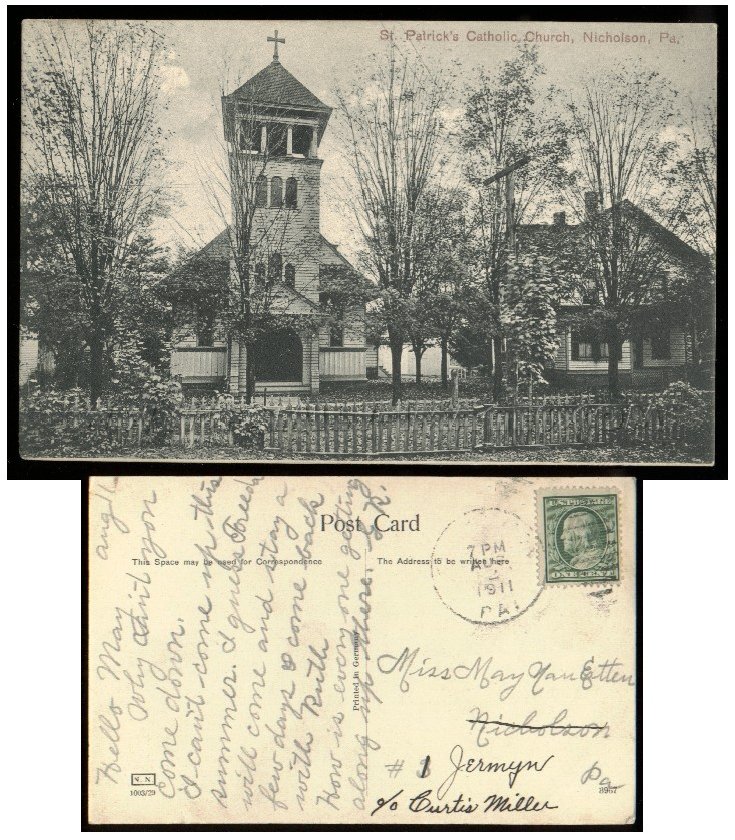 St. Patrick's Catholic Church, Nicholson, Pa.
Post Card
This Space may be used for Correspondence
The Address to be written here
7 PM
1911
PA.
U.S. POSTAGE
ONE CENT
Printed in Germany
N. N.
1003/29
8967
Aug 11
Hello May
Why can't you
come down.
I can't come up this
summer. I guess Freed
will come and stay a
few days & come back
with Ruth
How is every one getting
along up there.
Miss May Van Etten
Nicholson
# 1 Jermyn Pa
c/o Curtis Miller